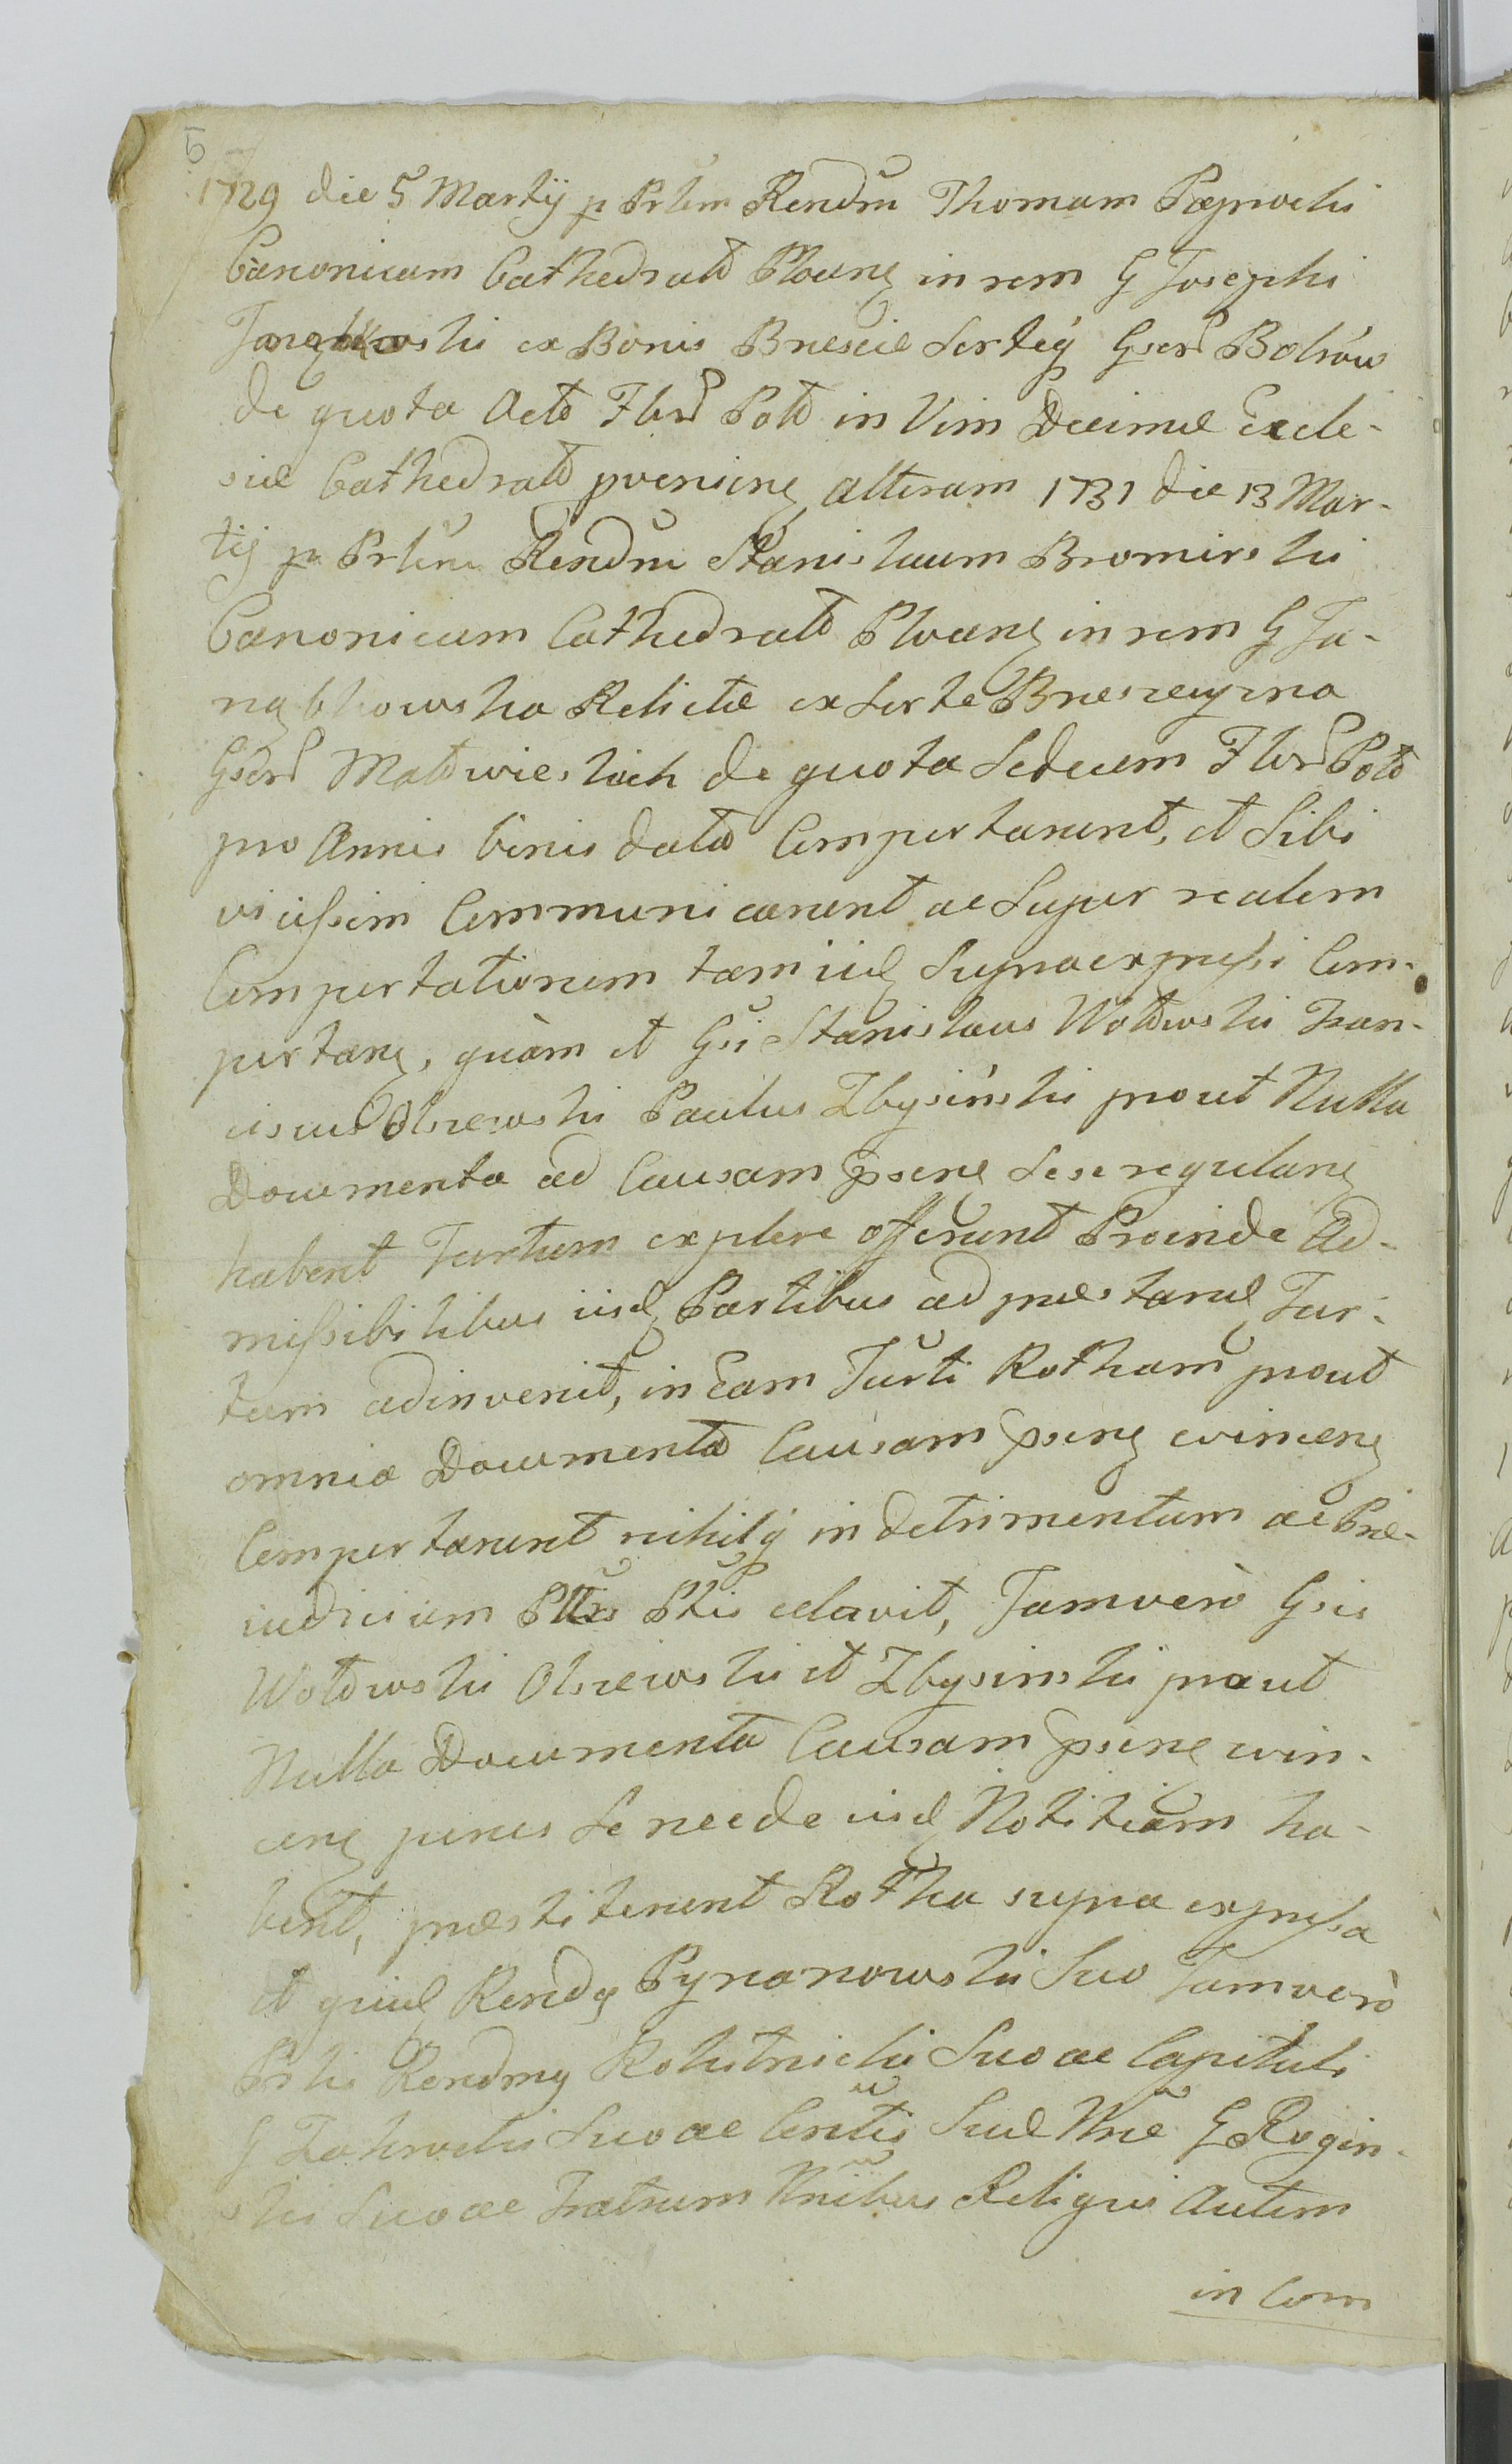 5
1729 die 5 Martij p Prlem Rendm Thomam Paprocki
Canonicum Cathedral Plocen in rem G Josephi
ex Bonis Brescie Sorteq Gser Bolsow
de quota Octo Flor Pol in Vim Decimæ Eccle-
siæ Cathedral provenien alteram 1731 die 13 Mar-
tij p Prlem Rendm Stanislaum Bromirski
Canonicum Cathedral Plocen in rem G Ja-
Relictæ ex Sorte
Gser de quota Sedecem Flor Pol
pro Annis binis dato Comportarunt, et Sibi
vicissim Communicarunt ac Super realem
Comportationem tam iid Supraexpressi Com-
portan, quàm et Gsi Stanislaus Woldwski Fran-
ciscus Olszewski Paulus Zbysinski prout Nulla
Documenta ad Causam psen Sese regulan
habent Jurtum explere offerunt Proinde Ad-
missibilibus iisd Partibus ad præstand Jur-
tum adinvenit, in Eam Jurti Rotham prout
omnia Documenta Causam psen evincen
Comportarunt nihilq in detrimentum ac Præ-
iudicium Ptis celavit, Jamverò Gsis
Woldwski Olszewski et Zbysinski prout
Nulla Documenta Causam psen evin-
cen penes Se nec de iisd Notitiam ha-
bent, præstiterunt Rotha supra expressa
et quid Rendq Suo Jamverò
Rendmq Rokitnicki Suo ac Capituli
G Zakrocki Suo ac Suæ Nne G Rogin-
ski Suo ac Fratrum Nnibus Reliqui Autem
in Com